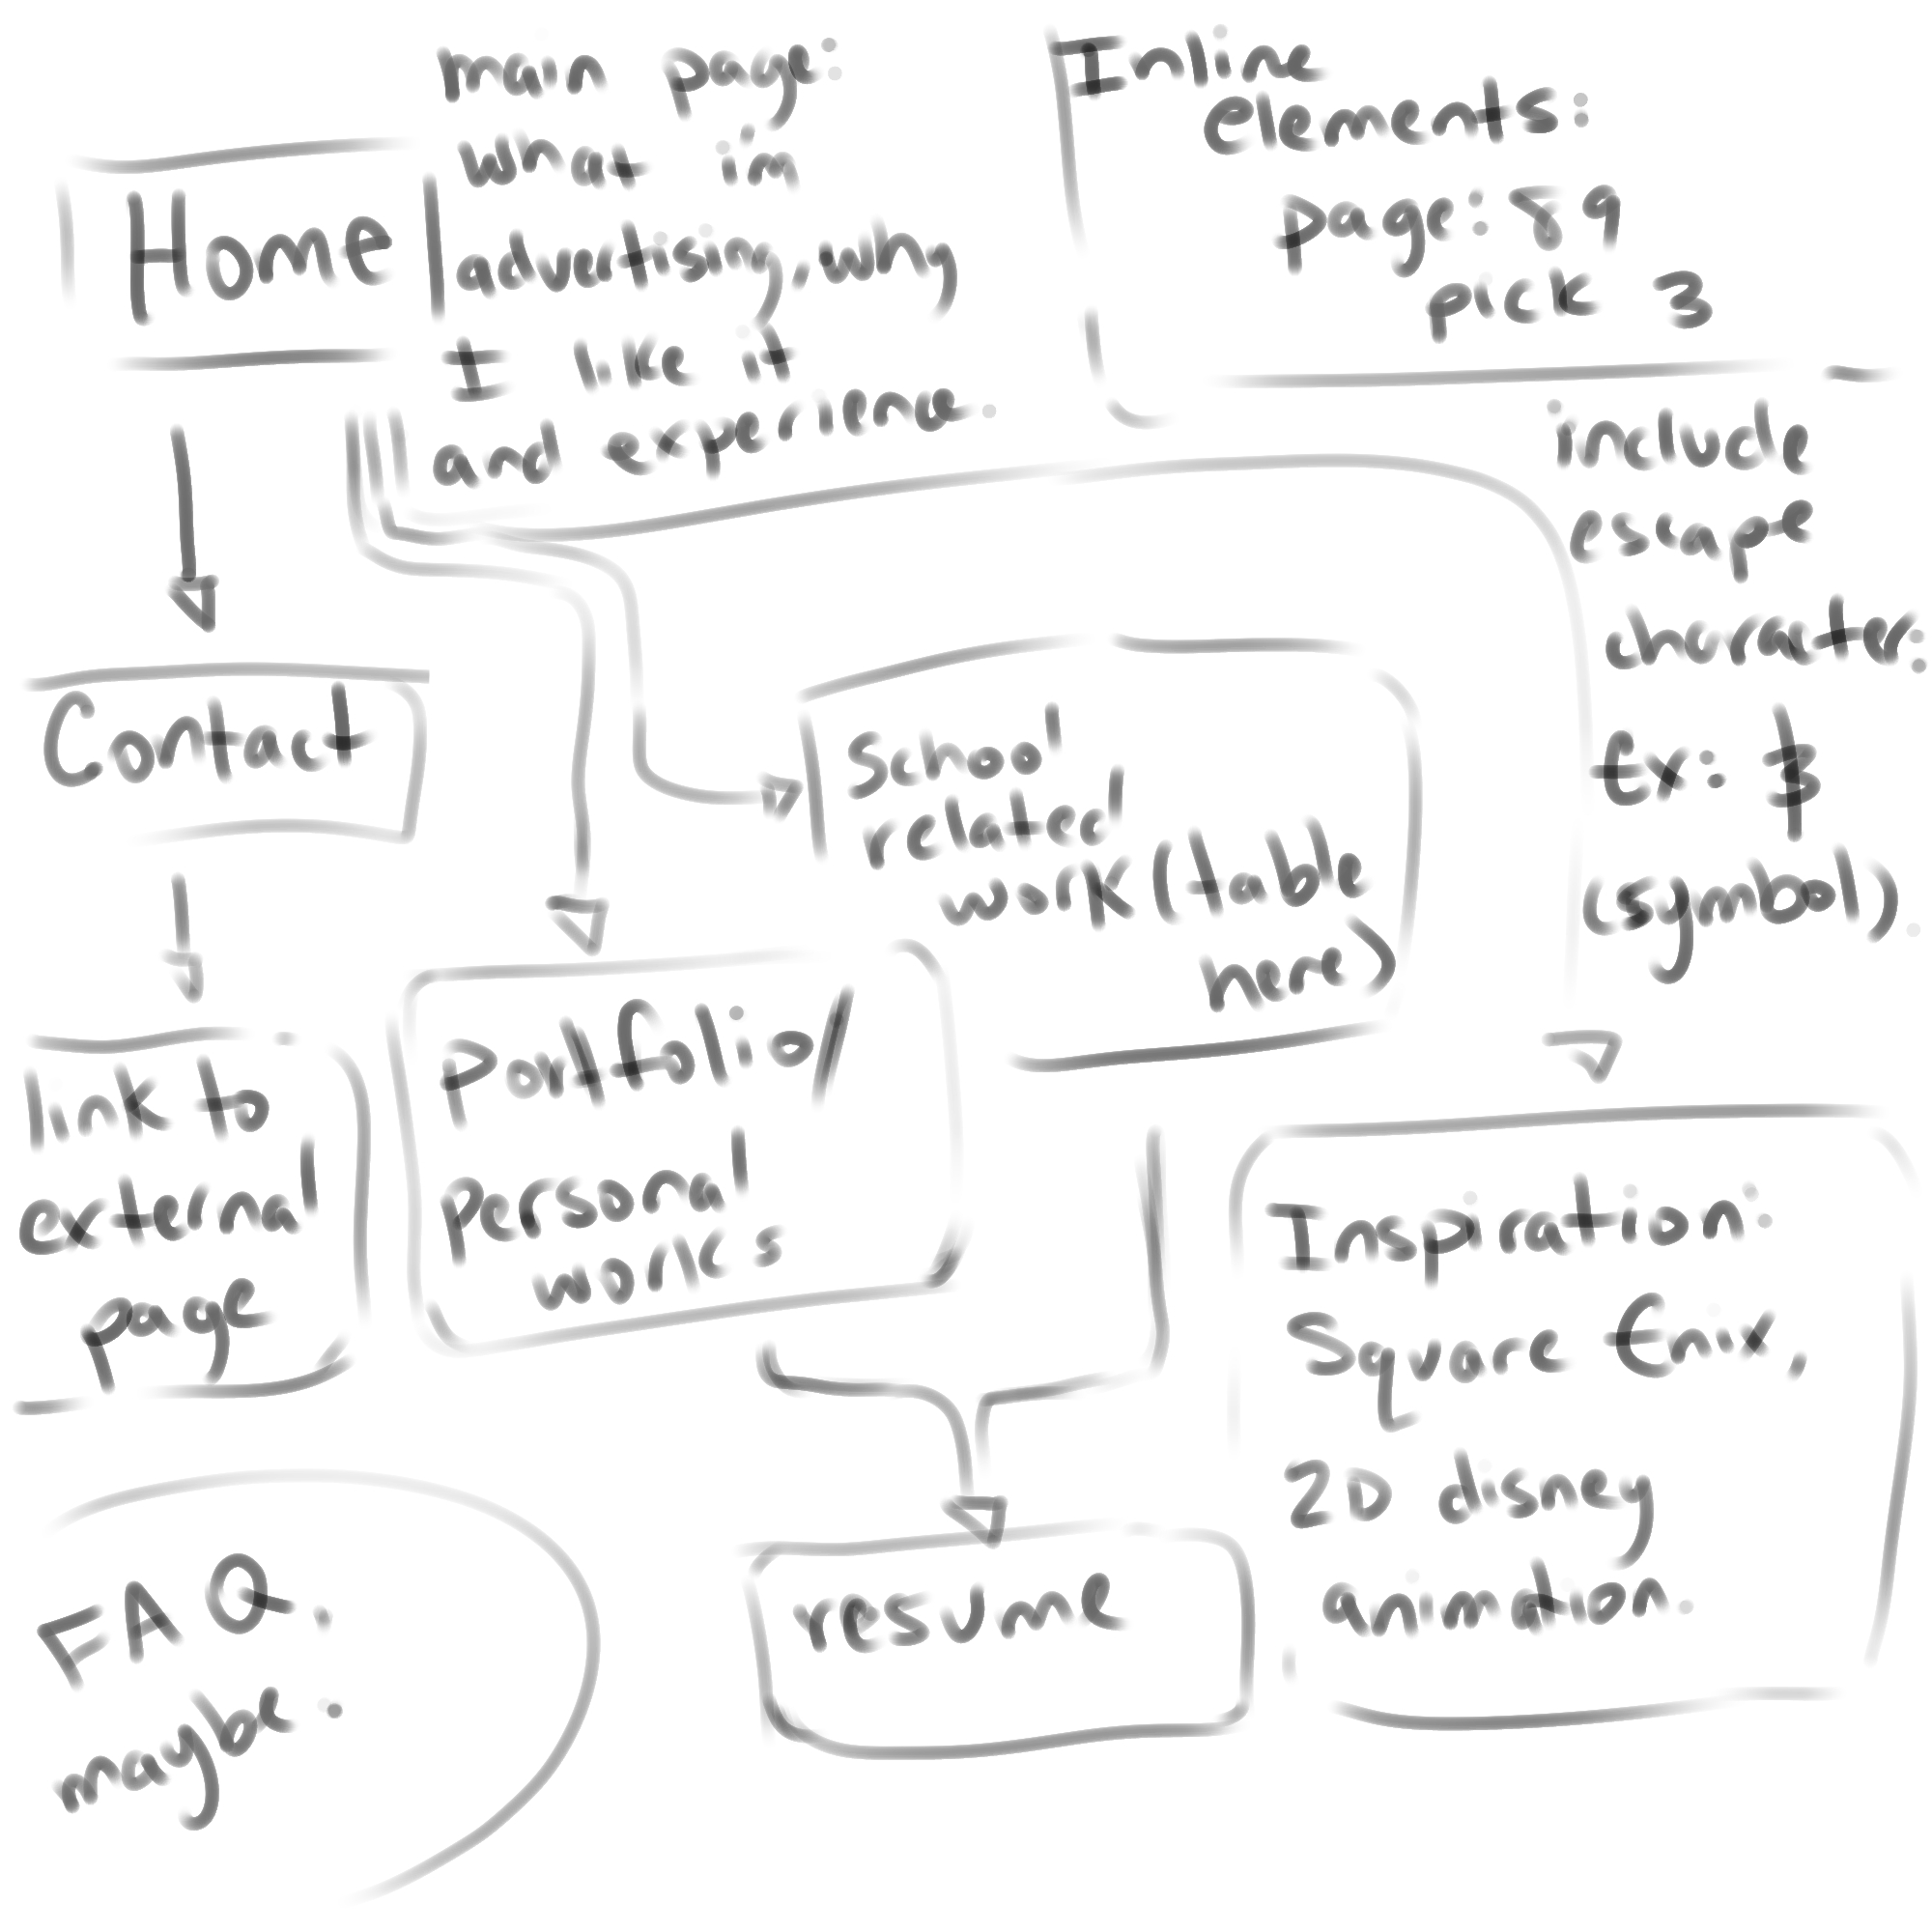 main page:
what im
advertising, why
I like it
and experience.
Home
Inline
elements:
page: 89
pick 3
include
escape
character:
Ex:
(symbol).
Contact
school
related
work (table
here)
link to
external
page
portfolio/
personal
works
Inspiration:
Square Enix,
2D disney
animation.
resume
FAQ.
maybe.